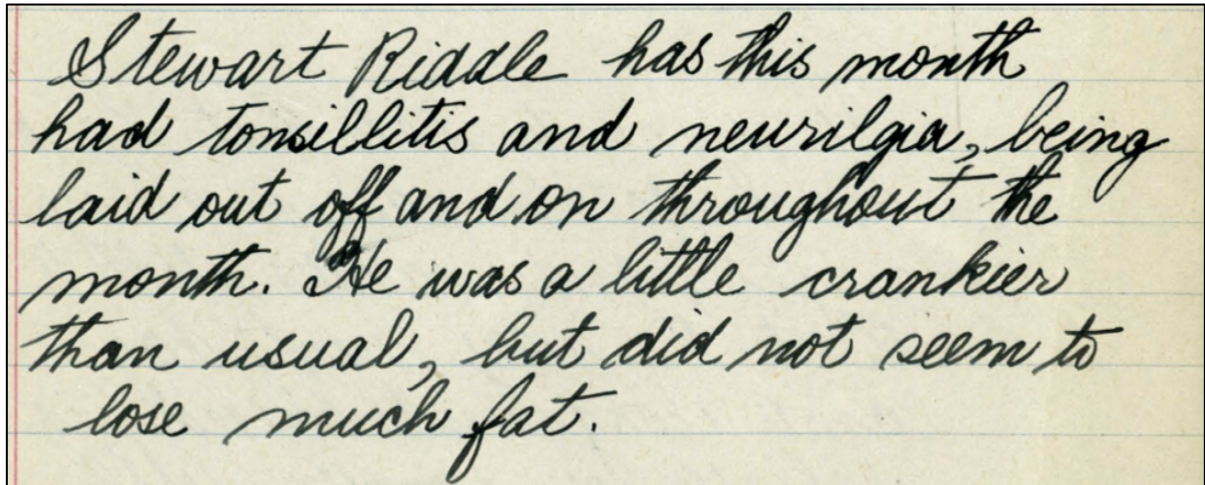 Stewart Riddle has this month
had tonsillitis and neurilgia, being
laid out off and on throughout the
month. He was a little crankier
than usual, but did not seem to
lose much fat.